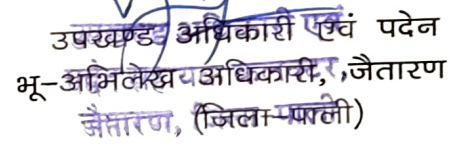 उपखण्ड अधिकारी एवं पदेन
भू-अभिलेख अधिकारी, जैतारण
जैतारण, (जिला-पाली)